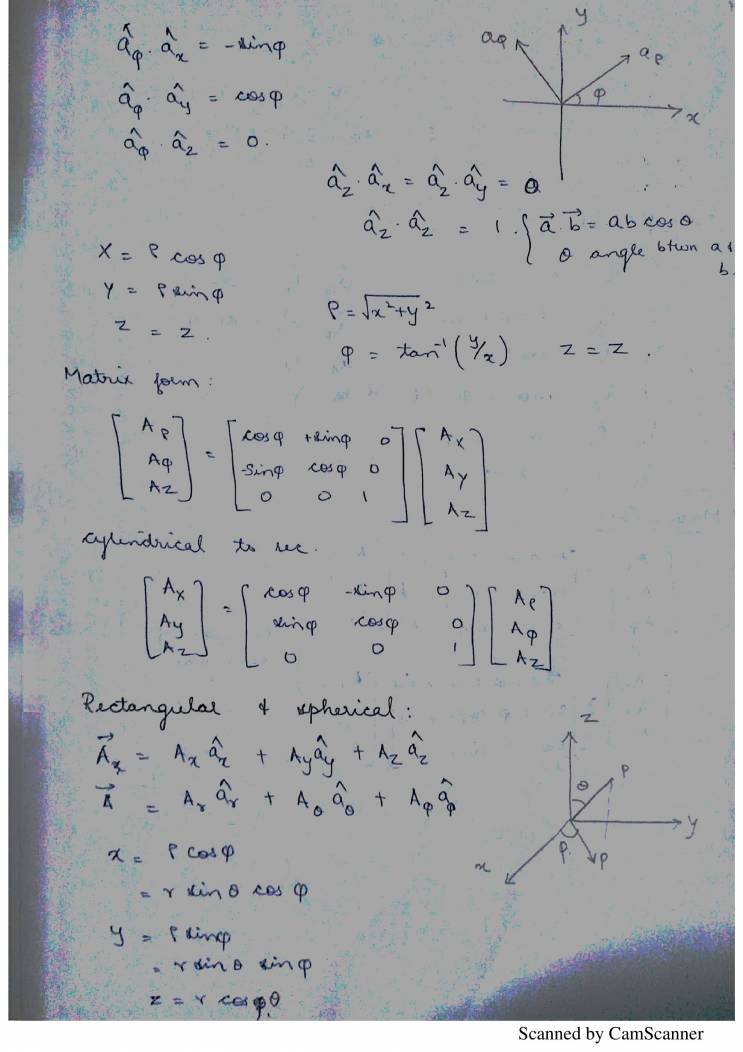 â_φ · â_x = -sinφ
â_φ · â_y = cosφ
â_φ · â_z = 0.
y
a_φ
a_ρ
φ
x
â_z · â_x = â_z · â_y = 0
â_z · â_z = 1 . { a⃗ . b⃗ = ab cos θ
θ angle btwn a &
b.
X = ρ cos φ
Y = ρ sin φ
z = z.
ρ = √x²+y²
φ = tan⁻¹ (y/x) z = z .
Matrix form :
[A_ρ A_φ A_z] = [cosφ +sinφ 0; -sinφ cosφ 0; 0 0 1] [A_x A_y A_z]
cylindrical to rec.
[A_x A_y A_z] = [cosφ -sinφ 0; sinφ cosφ 0; 0 0 1] [A_ρ A_φ A_z]
Rectangular & spherical :
A⃗_x = A_x â_x + A_y â_y + A_z â_z
A⃗ = A_r â_r + A_θ â_θ + A_φ â_φ
z
θ
P
y
x
ρ
x = ρ cosφ
= r sin θ cos φ
y = ρ sinφ
= r sin θ sin φ
z = r cos θ
Scanned by CamScanner